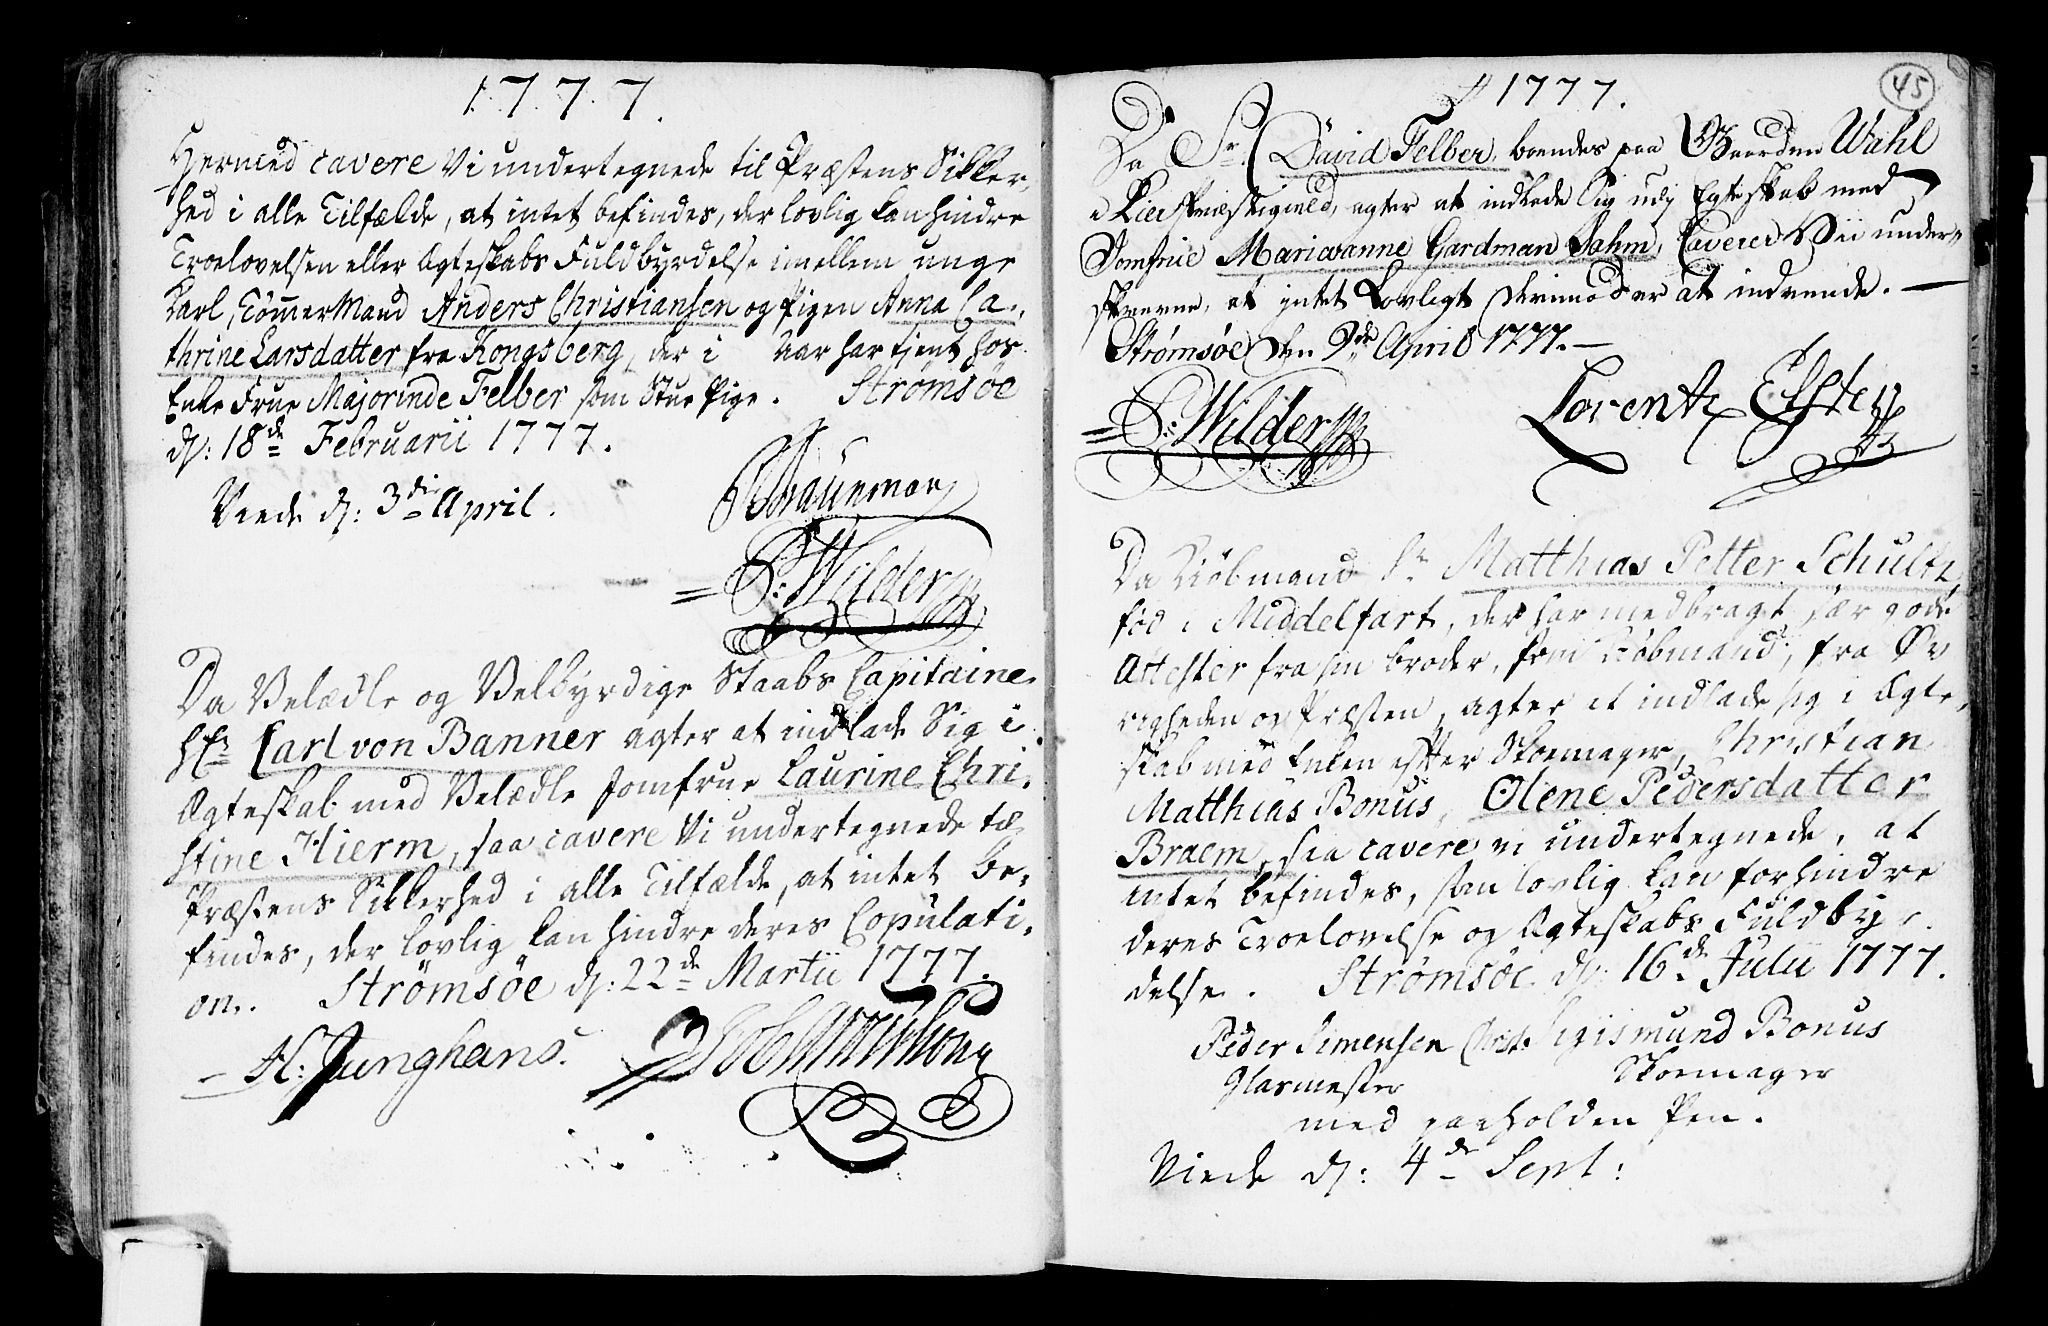 1777.
Hermed cavere Vi undertegnede til Præstens Sikker-
hed i alle Tilfælde, at intet befindes, der lovlig kan hindre
Troelovelsen eller Ægteskabs Fuldbyrdelse imellem unge
Karl, Tømmer Mand Anders Christiansen og Pigen Anna Ca-
thrine Larsdatter fra Kongsberg, der i Aar har tient hos
Enke Frue Majorinde Felber som Stue Pige. Strømsöe
d: 18de Februarii 1777.
Viede d: 3di April.
Braunman
P: Wilder
Da Velædle og Velbyrdige Staabs Capitaine
Hr. Carl von Banner agter at indlade Sig i
Ægteskab med Velædle Jomfrue Laurine Chri-
stine Hierm, saa cavere Vi undertegnede til
Præstens Sikkerhed i alle Tilfælde, at intet be-
findes, der lovlig kan hindre deres Copulati-
on. Strömsöe d: 22de Martii 1777.
H: Junghans.
1777.
45
Da Sr. David Felber, boendes paa Gaarden Wahl
i Lier Præstegield, agter at indlade sig udj Egteskab med
Jomfrue Mariaanne Gardman Sahm, Caverer Vii under-
skrevne, at intet Lovligt derimod er at indvende.
Strømsøe den 9de April 1777.
P: Wilder
Lorentz Elster
Da Kiøbmand Sr. Matthias Petter Schultz,
fød i Middelfart, der har medbragt sær gode
Attester fra sin broder, som Kiøbmand, fra Øv
righeden og Præsten, agter at indlade sig i Ægte-
skab med Enken efter Skoemager, Christian
Matthias Bonus, Olene Pedersdatter
Braem, saa cavere vi undertegnede, at
intet befindes, som lovlig kan forhindre
deres Troelovelse og Ægteskabs Fuldbyr-
delse. Strømsöe d: 16de Julii 1777.
Peder Simensen Christ: Sigismund Bonus
Glarmester Skoemager
med paaholden Pen.
Viede d: 4de Sept: